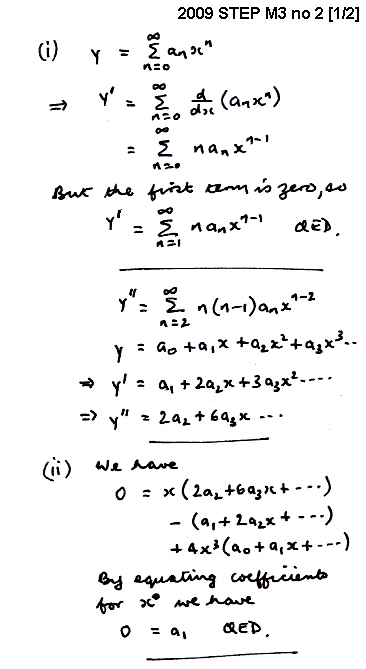 2009 STEP M3 no 2 [1/2]
(i) y = ∞ Σ n=0 aₙxⁿ
⇒ y' = ∞ Σ n=0 d/dx (aₙxⁿ)
= ∞ Σ n=0 naₙxⁿ⁻¹
But the first term is zero, so
y' = ∞ Σ n=1 naₙxⁿ⁻¹ QED.
y'' = ∞ Σ n=2 n(n-1)aₙxⁿ⁻²
y = a₀ + a₁x + a₂x² + a₃x³ ..
⇒ y' = a₁ + 2a₂x + 3a₃x² ....
⇒ y'' = 2a₂ + 6a₃x ...
(ii) We have
0 = x(2a₂ + 6a₃x + ...)
- (a₁ + 2a₂x + ...)
+ 4x³(a₀ + a₁x + ...)
By equating coefficients
for x⁰ we have
0 = a₁ QED.